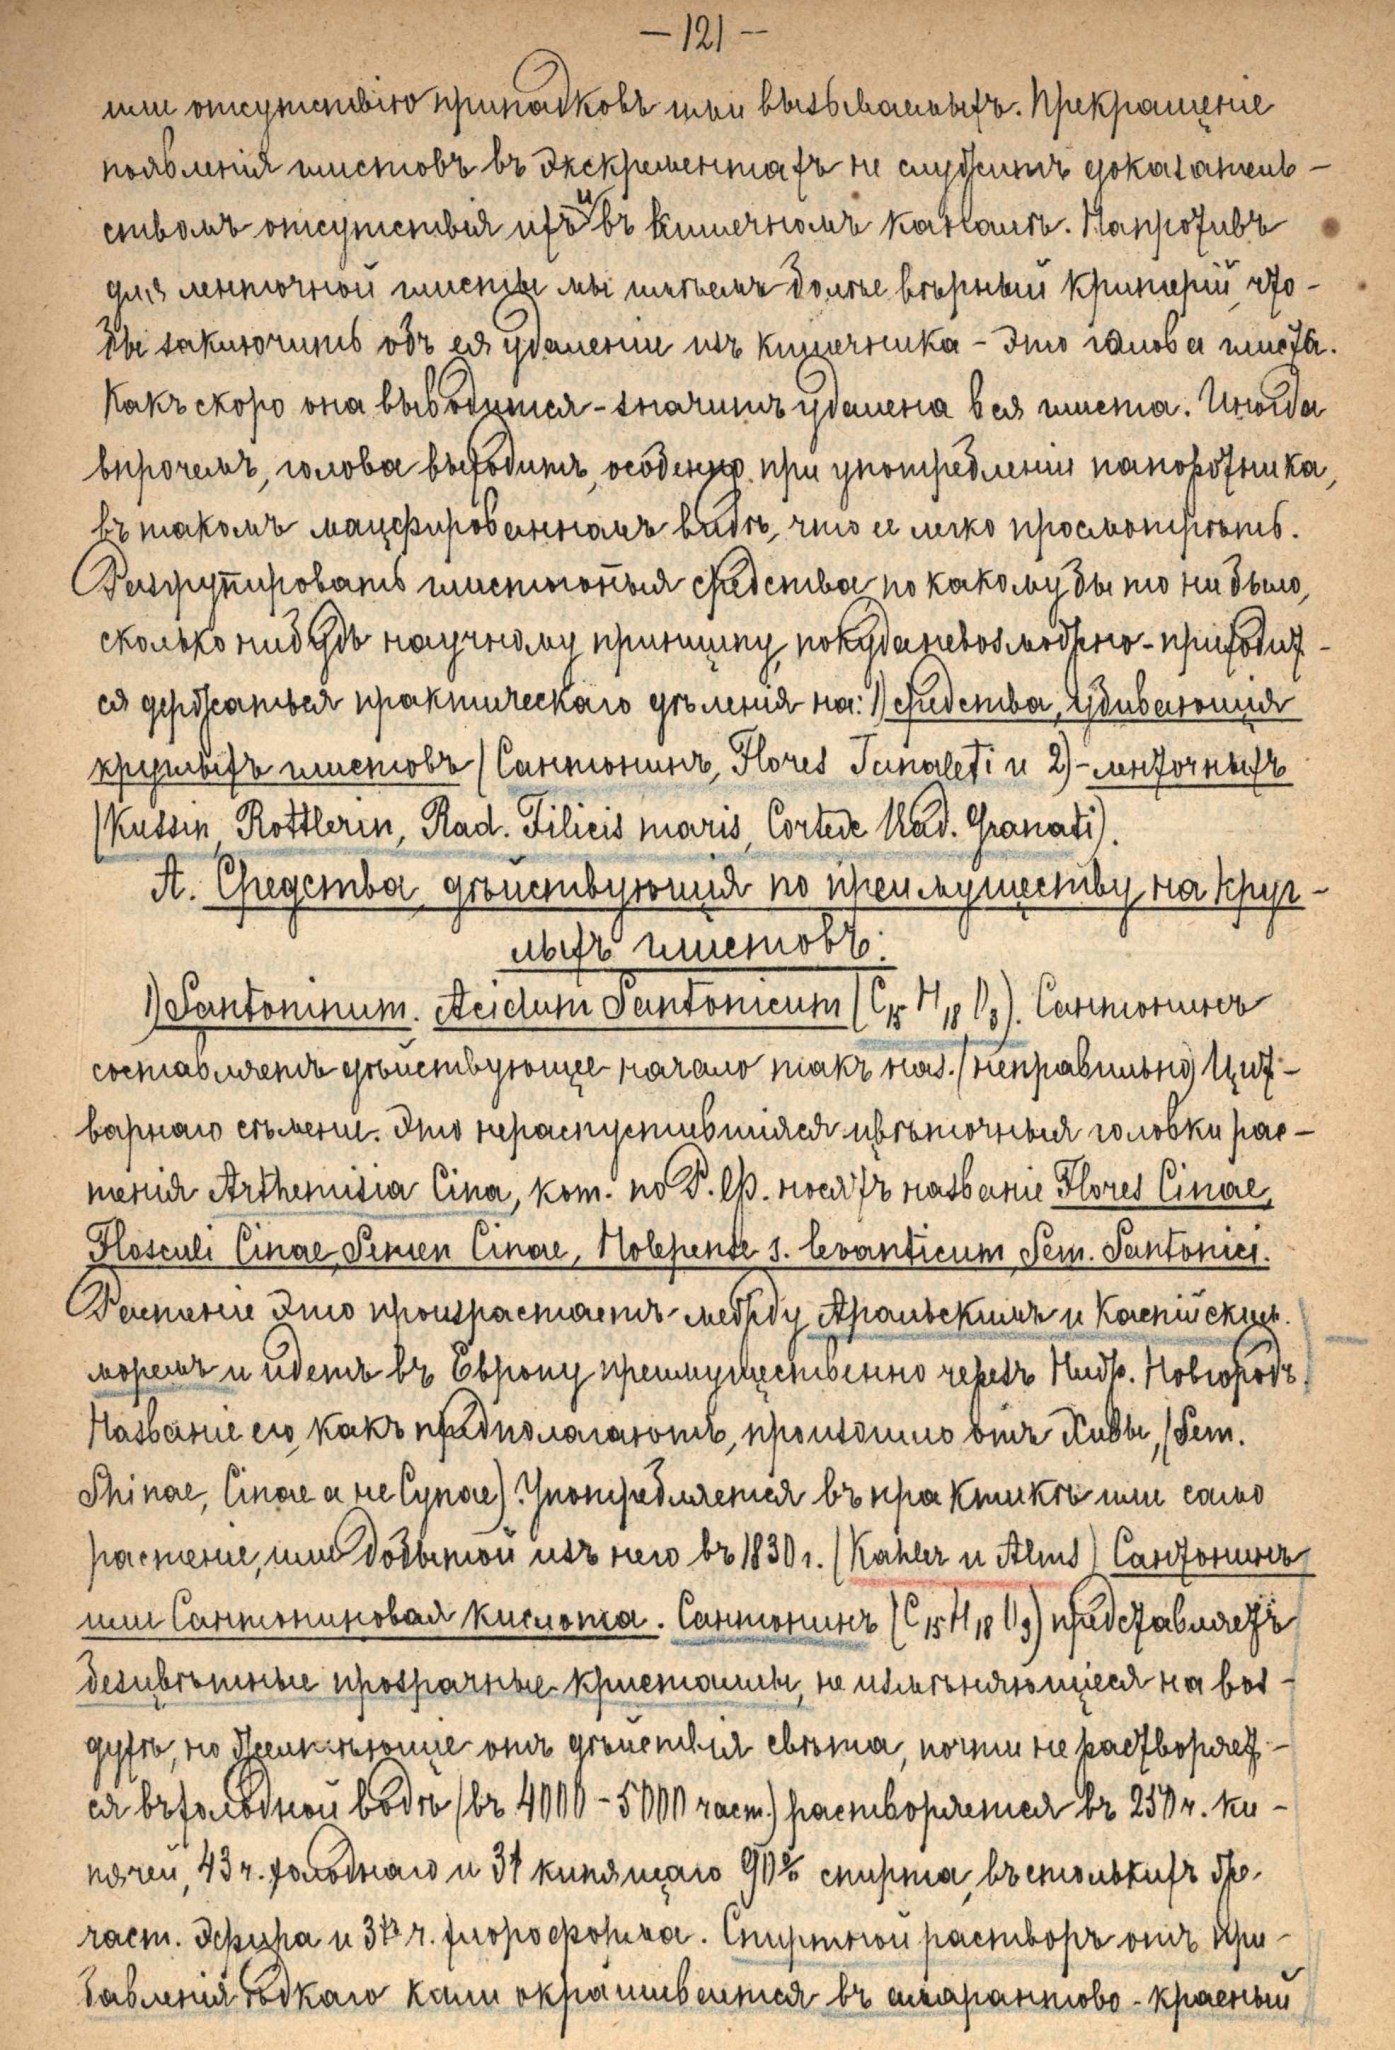 — 121 —
или отсутствію припадковъ ими вызываемыхъ. Прекращеніе
появленія глистовъ въ экскрементахъ не служитъ доказатель-
ствомъ отсутствія ихъ и въ кишечномъ каналѣ. Напротивъ
для ленточной глисты мы имѣемъ болѣе вѣрный критерій, что-
бы заключить объ ея удаленіи изъ кишечника – это голова глиста.
Какъ скоро она выводится – значитъ удалена вся глиста. Иногда
впрочемъ, голова выходитъ, особенно при употребленіи папоротника,
въ такомъ мацерированномъ видѣ, что ее легко просмотрѣть.
Разгруппировать глистогоныя средства по какому бы то ни было,
сколько нибудь научному принципу, покуда невозможно – приходит-
ся держаться практическаго дѣленія на: 1) средства, убивающія
круглыхъ глистовъ (Сантонинъ, Flores Tanaceti и 2) – ленточныхъ
(Kussin, Rottlerin, Rad. Filicis maris, Cortex Rad. Granati).
А. Средства, дѣйствующія по преимуществу на круг-
лыхъ глистовъ:
1) Santoninum. Acidum Santonicum (C15 H18 O3). Сантонинъ
составляетъ дѣйствующее начало такъ наз. (неправильно) Цит-
варнаго сѣмени. Это нераспустившіяся цвѣточныя головки рас-
тенія Arthemisia Cina, кот. по Р. Ф. носятъ названіе Flores Cinae,
Flosculi Cinae, Semen Cinae, Halepense s. levanticum, Sem. Santonici.
Растеніе это произрастаетъ между Аральскимъ и Каспійским.
моремъ и идетъ въ Европу преимущественно черезъ Ниж. Новгородъ.
Названіе его, какъ предполагаютъ, произошло отъ Хивы, (Sem.
Shinae, Cinae а не Cynae). Употребляется въ практикѣ или само
растеніе, или добытой изъ него въ 1830 г. (Kahler и Alms) Сантонинъ
или Сантониновая кислота. Сантонинъ (C15 H18 O3) представляетъ
безцвѣтные прозрачные кристаллы, не измѣняющіеся на воз-
духѣ, но желтѣющіе отъ дѣйствія свѣта, почти не растворяет-
ся въ холодной водѣ (въ 4000 – 5000 част.) растворяется въ 250 ч. ки-
пячей, 43 ч. холоднаго и 3 кипящаго 90% спирта, въ столькихъ же
част. эфира и 3 ч. хлороформа. Спиртной растворъ отъ при-
бавленія ѣдкаго кали окрашивается въ амарантово-красный